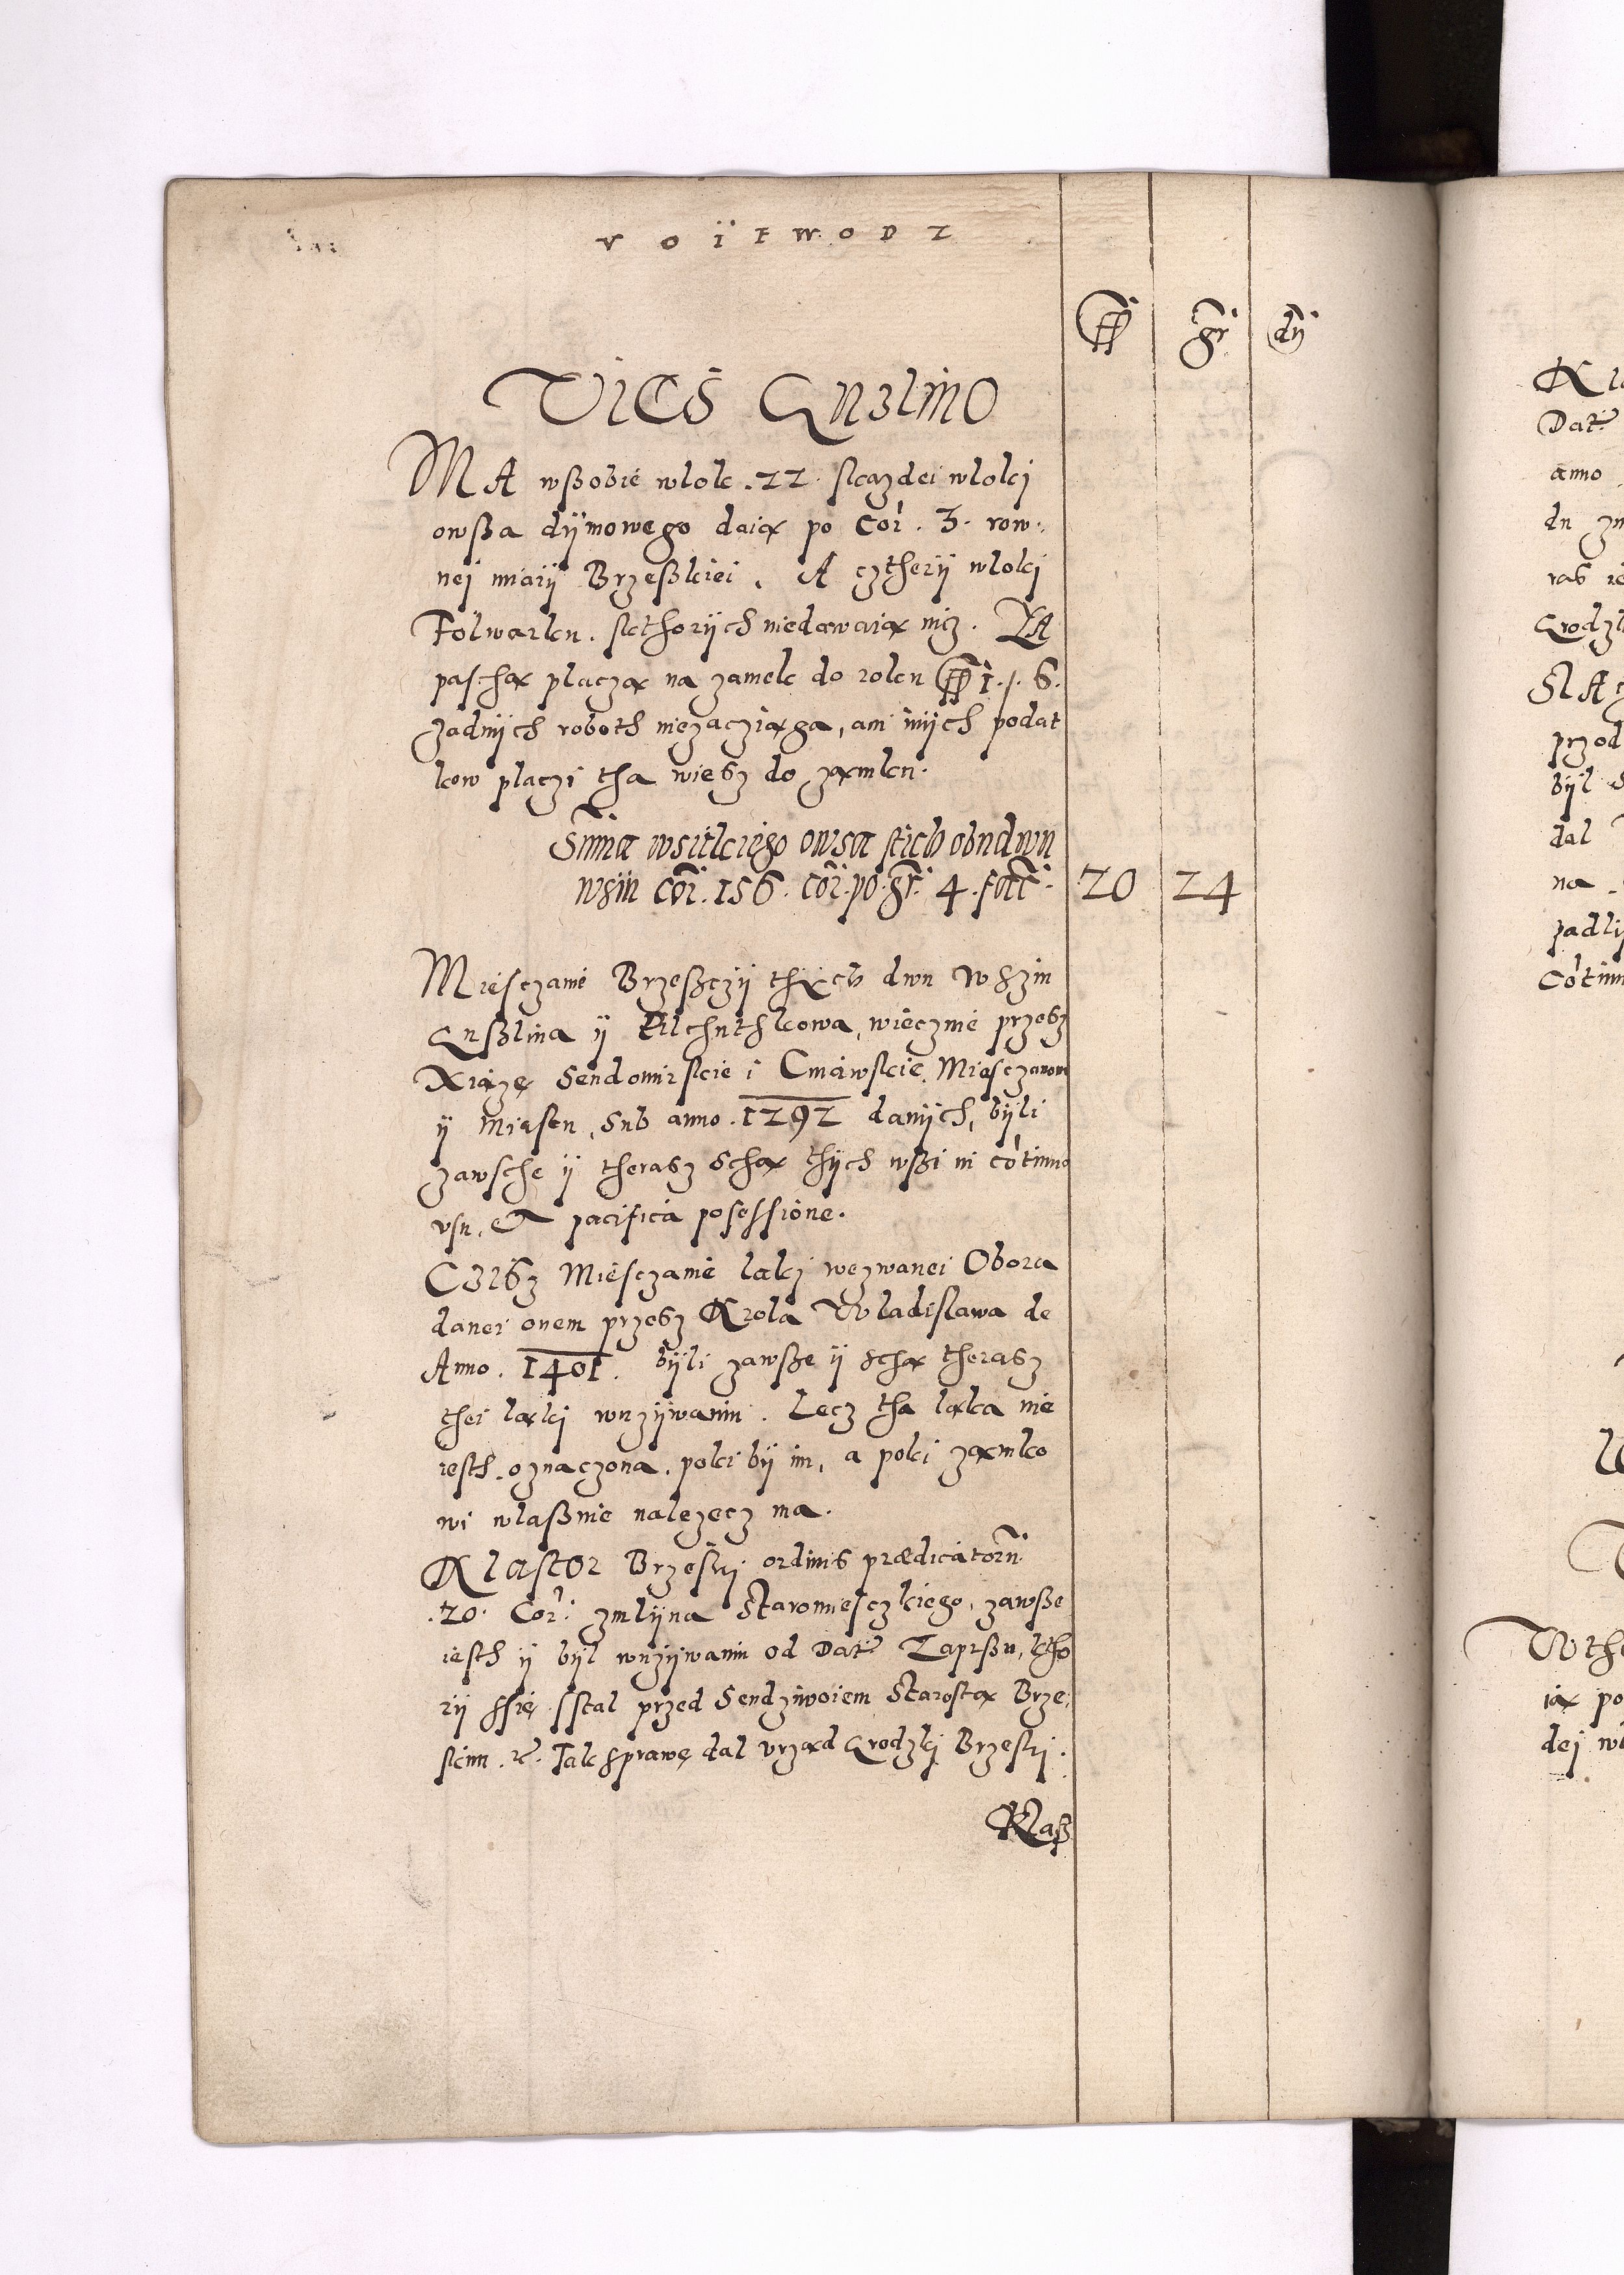 VOIEWODZ
fl gr dn
Vies Guzlino
MA wßobie wlok . 22 . skazdei wloki
owßa dÿmowego daią po Cor . 3 . row-
nej miarÿ Brzeßkiei . A cztherÿ wloki
Folwarku . skthorÿch niedawaią nicz . ZA
paschą placzą na zamek do roku fl 1 . / . 6 .
Zadnÿch roboth niezacziąga , ani inÿch podat
kow placzi tha wiesz do zamku .
Suma wsitkiego owsa stich obudwu
wsiu Cor . 156 . Cor . po . gr . 4 . facit . 20 24
Miesczanie Brzesczÿ thÿch dwu Wszin
Gußlina ÿ Kuchuthkowa , wiecznie przesz
Xiązę Sendomirskie i Cuiawskie Miesczanom
ÿ Miastu , sub anno . 1292 danÿch , bÿli
zawsche ÿ therasz schą thÿch wßi in cotinuo
vsu , Et pacifica posessione .
Cizsz Miesczanie ląki wezwanei Obora
danei onem przesz Krola Wladislawa de
Anno . 1401 . bÿli zawße ÿ schą therasz
thei ląki wuzÿwaniu . Lecz tha ląka nie
iesth . oznaczona , poki bÿ im , a poki zamko
wi wlaßnie nalezecz ma .
Klastor Brzeski ordinis prædicatoru
. 20 . Cor : zmlÿna Staromiesczkiego , zawße
iesth ÿ bÿl wuzÿwaniu od Datÿ Zapißu , ktho
rÿ ssię sstal przed Sendziwoiem Starostą Brze-
skim . &c . Jak sprawę dal vrząd Grodzki Brzeski .
Klaß